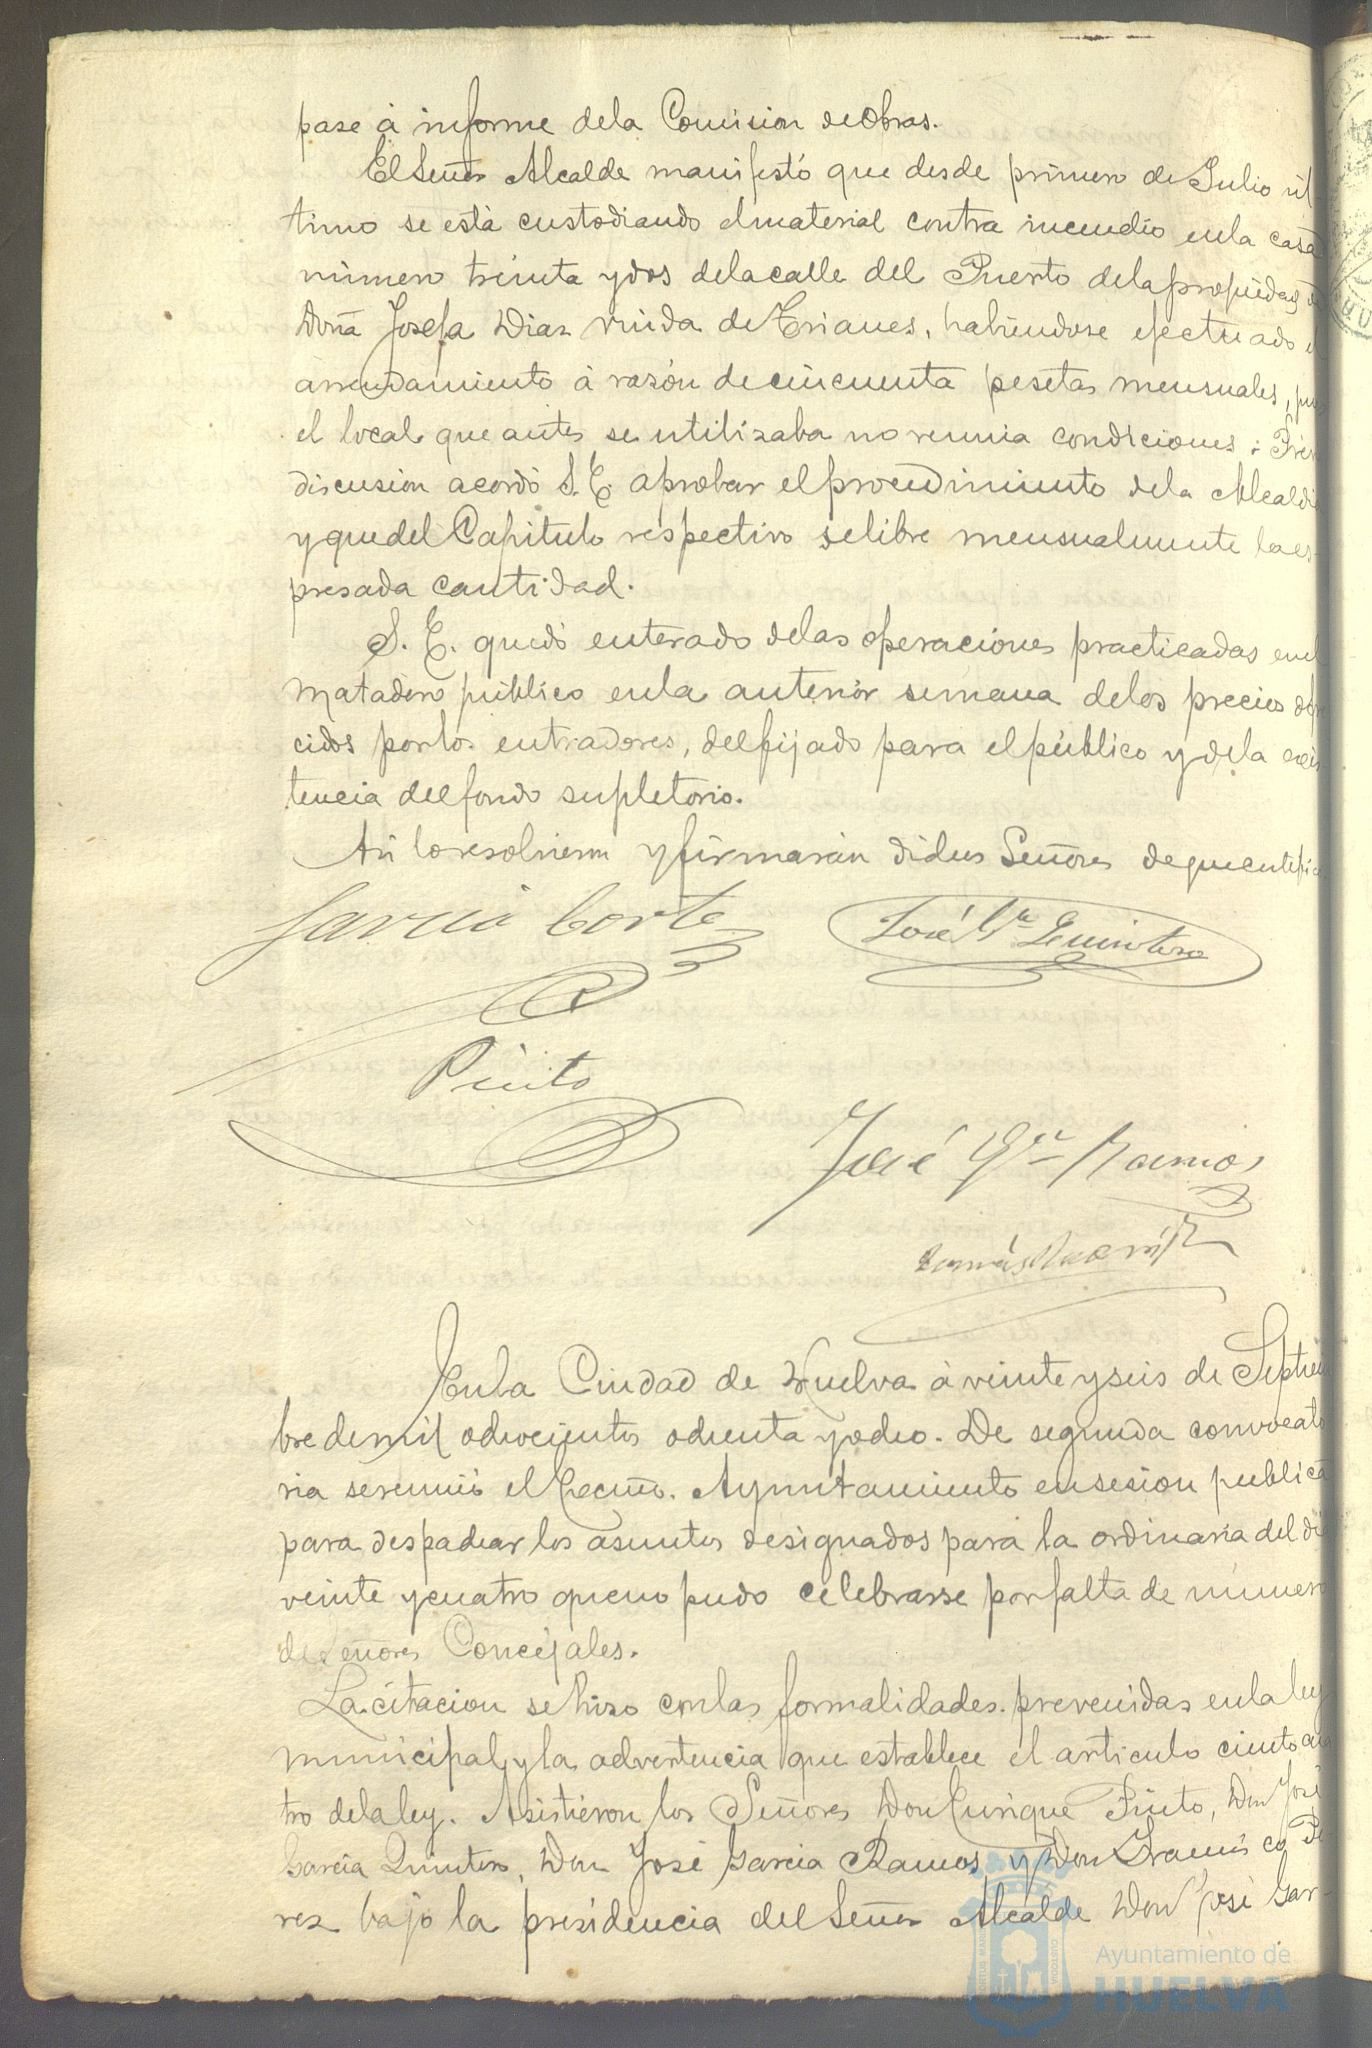 pase á informe dela Comision de Obras.
El Señor Alcalde manifestó que desde primero de Julio úl
timo se está custodiando el material contra incendio enla casa
número treinta y dos dela calle del Puerto dela propiedad de
Doña Josefa Diaz viuda de Trianes, habiendose efectuado el
arrendamiento á razón de cincuenta pesetas mensuales, pues
el local que antes se utilizaba no reunia condiciones: Prév
discusion acordó S. E. aprobar el procedimiento dela Alcaldia
y que del Capitulo respectivo se libre mensualmente la es
presada cantidad.
S. E. quedó enterado delas operaciones practicadas enel
Matadero público enla anterior semana delos precios ofre
cidos porlos entradores, del fijado para el público y dela exis
tencia del fondo supletorio.
Asi lo resolvieron y firmarán dichos Señores de que certifico
Garcia Cortes
José G.ª Quintero
Pinto
José G.ª Ramos
Tomás
Enla Ciudad de Huelva á veinte y seis de Septiem
bre de mil ochocientos ochenta y ocho. De segunda convocato
ria se reunió el Excmo. Ayuntamiento en sesion publica
para despachar los asuntos designados para la ordinaria del dia
veinte y cuatro que no pudo celebrarse por falta de número
de Señores Concejales.
La citacion se hizo con las formalidades prevenidas enla ley
municipal y la advertencia que establece el articulo ciento cua
tro dela ley. Asistieron los Señores Don Enrique Pinto, Don José
Garcia Quintero, Don José Garcia Ramos y Don Francisco Pe
rez bajo la presidencia del Señor Alcalde Don José Gar-
Ayuntamiento de
HUELVA